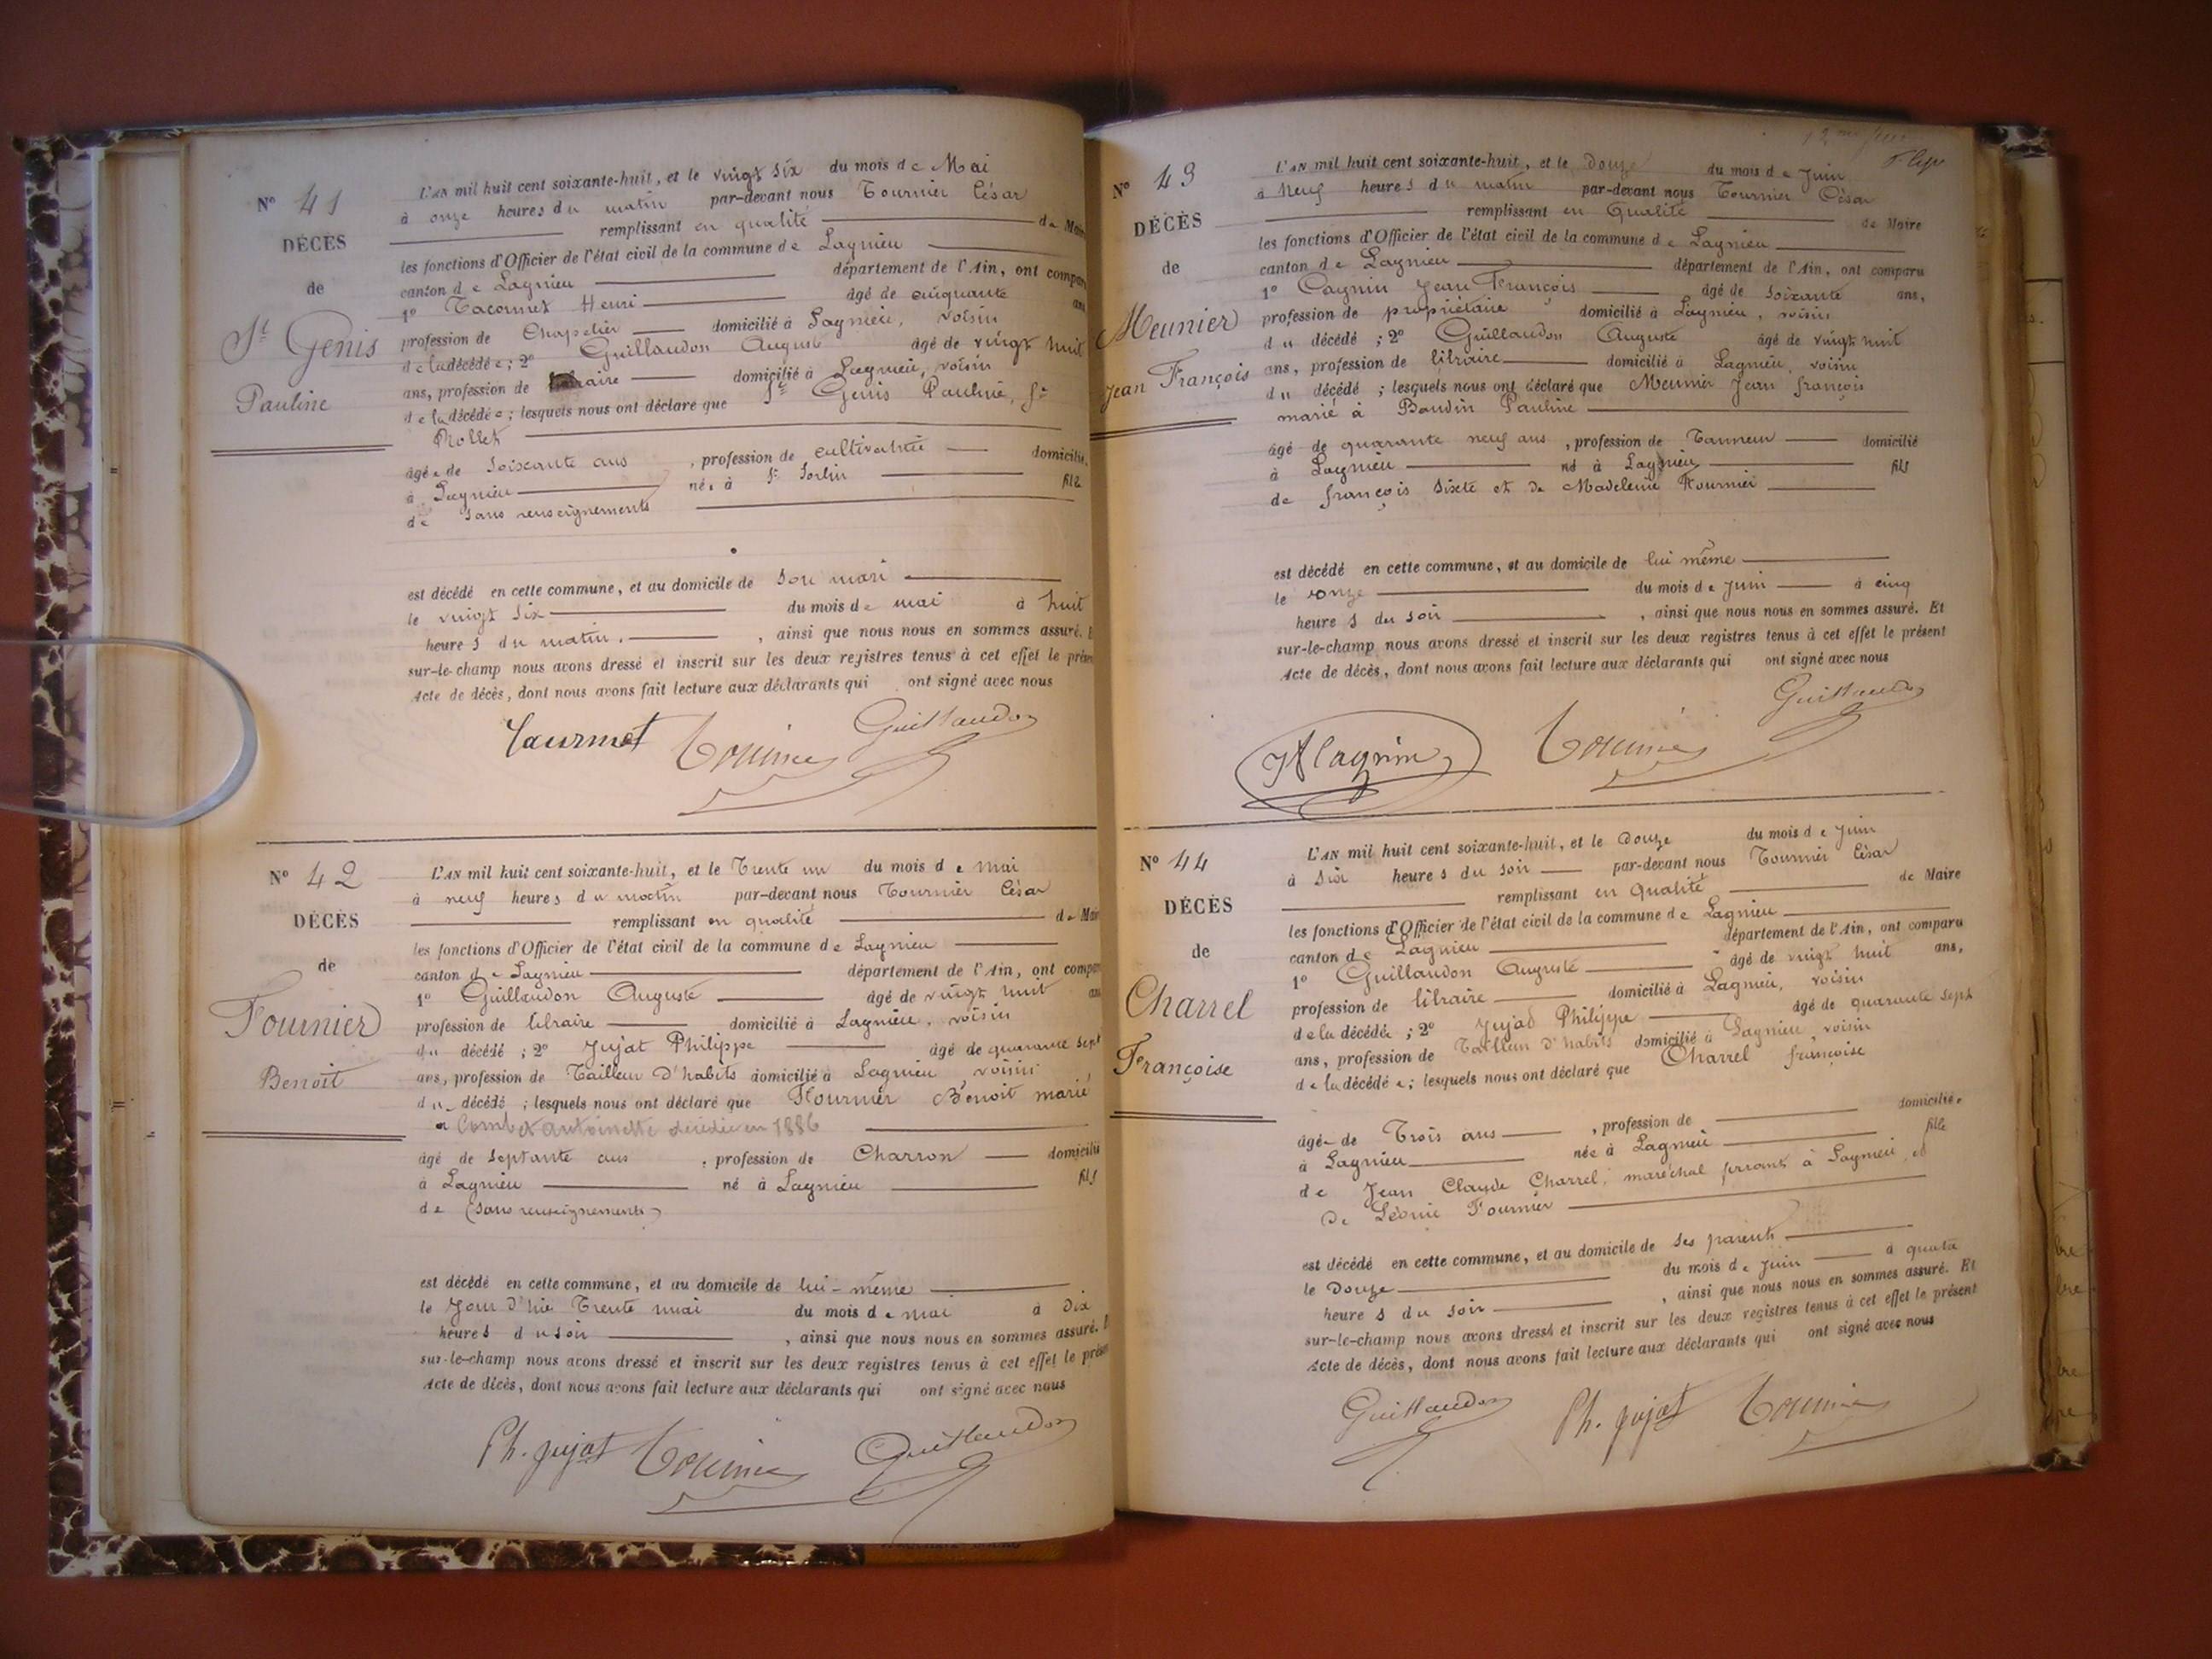 N° 41
DÉCÈS
de
St Genis
Pauline
L'AN mil huit cent soixante-huit, et le vingt six du mois de Mai
à onze heures du matin par-devant nous Tournier César
remplissant en qualité de Maire
les fonctions d'Officier de l'état civil de la commune de Lagnieu
canton de Lagnieu département de l'Ain, ont comparu
1° Henri âgé de cinquante ans
profession de Chapelier domicilié à Lagnieu, voisin
de la décédée ; 2° Guillaudon Auguste âgé de vingt huit
ans, profession de domicilié à Lagnieu, voisin
de la décédée ; lesquels nous ont déclaré que St Genis Pauline, fe
Rollet
âgée de soixante ans , profession de cultivatrice domiciliée
à Lagnieu née à St Sorlin fille
de sans renseignements
est décédé en cette commune, et au domicile de son mari
le vingt six du mois de mai à huit
heures du matin. , ainsi que nous nous en sommes assuré. Et
sur-le-champ nous avons dressé et inscrit sur les deux registres tenus à cet effet le présent
Acte de décès, dont nous avons fait lecture aux déclarants qui ont signé avec nous
Guillaudon
N° 42
DÉCÈS
de
Fournier
Benoit
L'AN mil huit cent soixante-huit, et le Trente un du mois de mai
à neuf heures du matin par-devant nous Tournier César
remplissant en qualité de Maire
les fonctions d'Officier de l'état civil de la commune de Lagnieu
canton de Lagnieu département de l'Ain, ont comparu
1° Guillaudon Auguste âgé de vingt huit ans
profession de libraire domicilié à Lagnieu, voisin
du décédé ; 2° Jujat Philippe âgé de quarante sept
ans, profession de Tailleur d'habits domicilié à Lagnieu voisin
du décédé ; lesquels nous ont déclaré que Fournier Benoit marié
a Combet antoinette décédée en 1886
âgé de septante ans , profession de Charron domicilié
à Lagnieu né à Lagnieu fils
de (sans renseignements)
est décédé en cette commune, et au domicile de lui-même
le Jour d'hier Trente mai du mois de mai à dix
heures du soir , ainsi que nous nous en sommes assuré.
sur-le-champ nous avons dressé et inscrit sur les deux registres tenus à cet effet le présent
Acte de décès, dont nous avons fait lecture aux déclarants qui ont signé avec nous
Ph. Jujat Guillaudon
N° 43
DÉCÈS
de
Meunier
Jean François
L'AN mil huit cent soixante-huit, et le douze du mois de Juin
à Neuf heures du matin par-devant nous Tournier César
remplissant en Qualité de Maire
les fonctions d'Officier de l'état civil de la commune de Lagnieu
canton de Lagnieu département de l'Ain, ont comparu
1° Jean François âgé de soixante ans,
profession de propriétaire domicilié à Lagnieu, voisin
du décédé ; 2° Guillaudon Auguste âgé de vingt huit
ans, profession de libraire domicilié à Lagnieu, voisin
du décédé ; lesquels nous ont déclaré que Meunier Jean françois
marié à Baudin Pauline
âgé de quarante neuf ans , profession de Tanneur domicilié
à Lagnieu né à Lagnieu fils
de françois Sixte et de Madeleine Fournier
est décédé en cette commune, et au domicile de lui même
le onze du mois de Juin à cinq
heures du soir , ainsi que nous nous en sommes assuré. Et
sur-le-champ nous avons dressé et inscrit sur les deux registres tenus à cet effet le présent
Acte de décès, dont nous avons fait lecture aux déclarants qui ont signé avec nous
Guillaudon
N° 44
DÉCÈS
de
Charrel
Françoise
L'AN mil huit cent soixante-huit, et le Douze du mois de Juin
à six heures du soir par-devant nous Tournier César
remplissant en Qualité de Maire
les fonctions d'Officier de l'état civil de la commune de Lagnieu
canton de Lagnieu département de l'Ain, ont comparu
1° Guillaudon Auguste âgé de vingt huit ans,
profession de libraire domicilié à Lagnieu, voisin
de la décédée ; 2° Jujat Philippe âgé de quarante sept
ans, profession de Tailleur d'habits domicilié à Lagnieu, voisin
de la décédée ; lesquels nous ont déclaré que Charrel françoise
âgée de Trois ans , profession de domiciliée
à Lagnieu née à Lagnieu fille
de Jean Claude Charrel, maréchal ferrant à Lagnieu et
de Léonie Fournier
est décédé en cette commune, et au domicile de ses parents
le Douze du mois de Juin à quatre
heures du soir , ainsi que nous nous en sommes assuré. Et
sur-le-champ nous avons dressé et inscrit sur les deux registres tenus à cet effet le présent
Acte de décès, dont nous avons fait lecture aux déclarants qui ont signé avec nous
Guillaudon Ph. Jujat